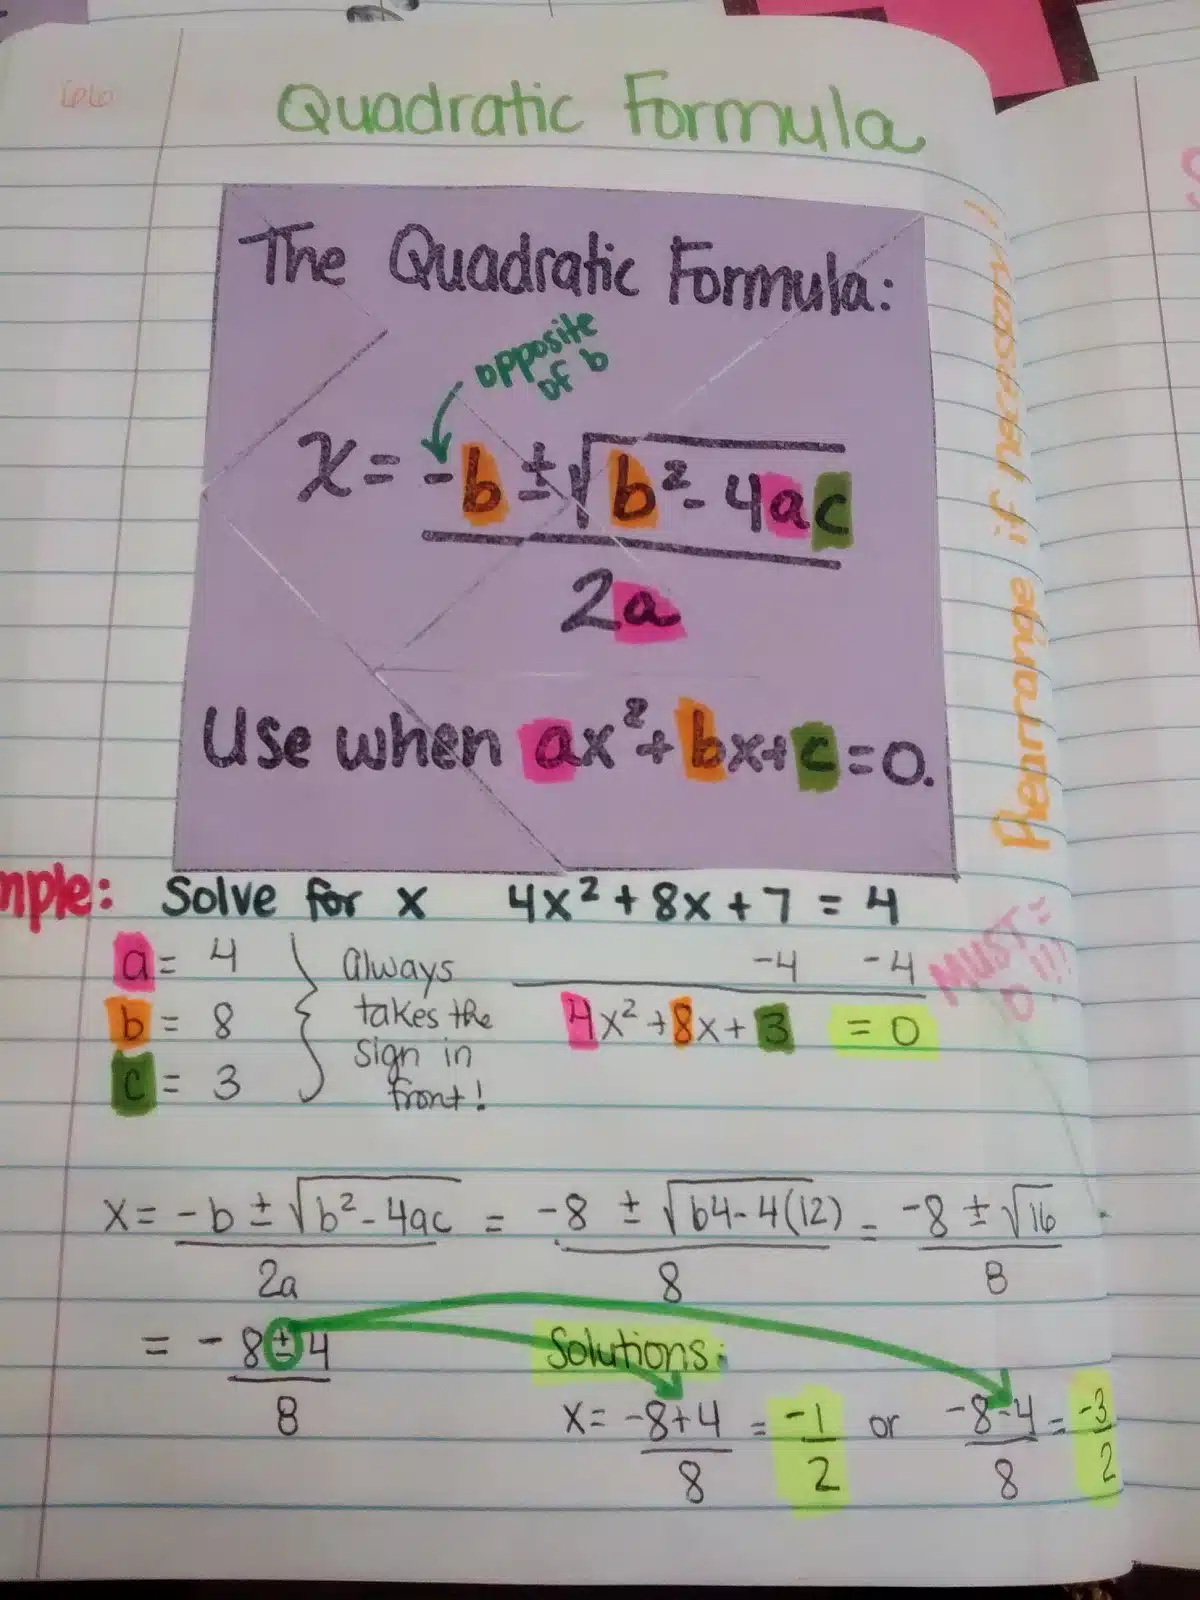 66
Quadratic Formula
The Quadratic Formula:
opposite
of b
x = -b ± √b² - 4ac
2a
Use when ax² + bx + c = 0.
Rearrange if necessary!!
mple: Solve for x 4x² + 8x + 7 = 4
-4 -4
MUST =
0!!!
a = 4
b = 8
c = 3
Always
takes the
sign in
front!
4x² + 8x + 3 = 0
x = -b ± √b² - 4ac = -8 ± √64 - 4(12) = -8 ± √16
2a 8 8
= -8 ± 4
8
Solutions:
x = -8+4 = -1 or -8-4 = -3
8 2 8 2